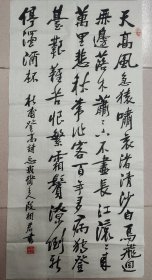 天高風急猿嘯哀渚清沙白鳥飛迴
無邊落木蕭々下不盡長江滾々來
萬里悲秋常作客百年多病獨登
臺艱難苦恨繁霜鬢潦倒新
停濁酒杯 杜甫登高詩